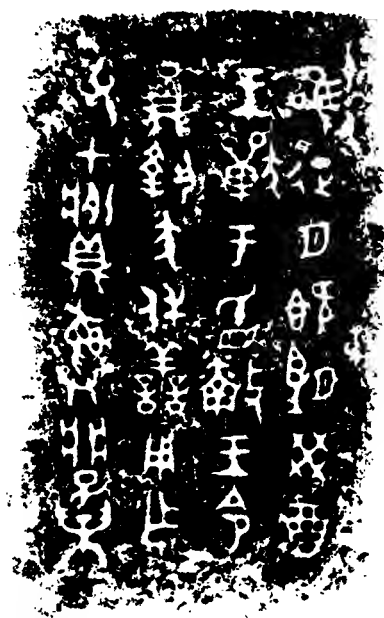 唯征月既望癸酉
王獸于眂廩王令
員執犬休善用乍
父甲𩰬彝